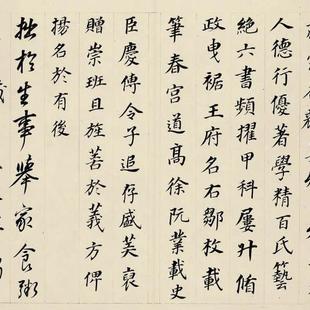 人德行優著學精百氏藝
絕六書頻擢甲科屢升循
政曳裾王府名右鄒枚載
筆春宮道髙徐阮業載史
臣慶傳令子追存盛美裒
贈崇班且旌善於義方俾
揚名於有後
拙於生事舉家食粥